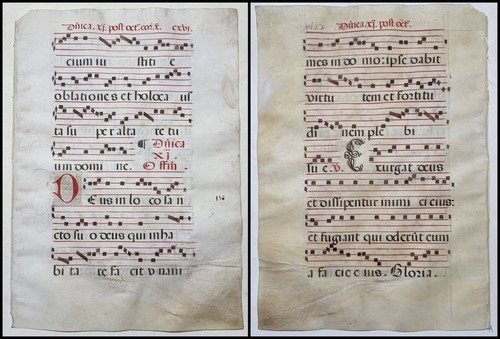 Dñica. xj. post oct. cor. x̃. cxvi.
cium iu stiti e
oblationes et holoca us
ta su per alta re tu
um domi ne. ¶ Dñica
XJ.
Offm̃.
D Eus in lo co san
cto suo deus qui inha
bi ta re fa cit unam
116
Dñica. xj. post oct.
mes in do mo: ipse dabit
virtu tem et fortitu
di nem ple bi
su e. V. Exurgat deus
et dissipentur inimi ci eius:
et fugiant qui oderũt eum
a fa cie e ius. Gloria.